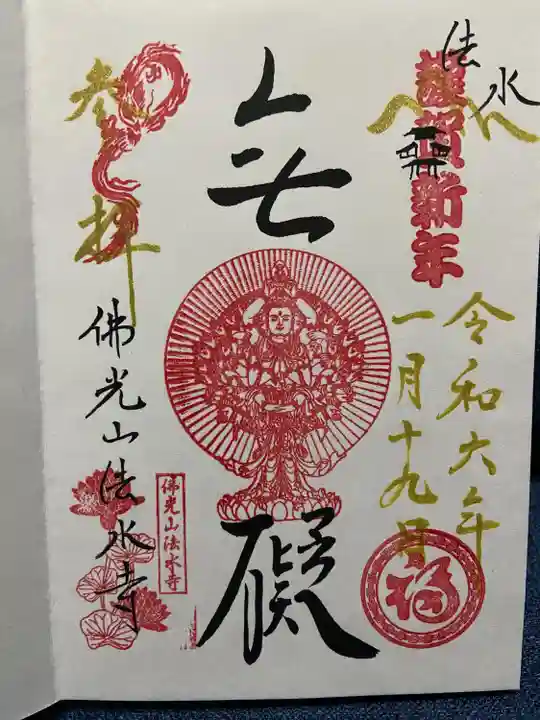 法水
謹賀新年
令和六年
一月十九日
福
無
礙
参拝
佛光山法水寺
佛光山法水寺